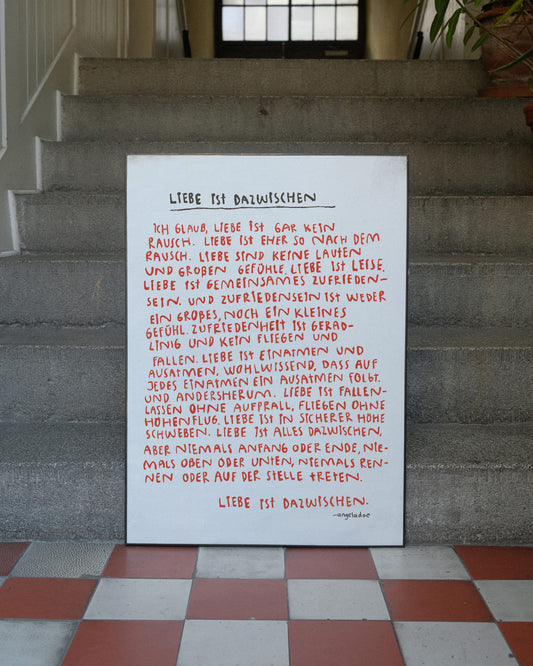 LIEBE ist DAZWISCHEN
ICH GLAUB, LIEBE ist GAR KEIN
RAUSCH. LIEBE ist EHER SO NACH DEM
RAUSCH. LIEBE SIND KEINE LAUTEN
UND GROßEN GEFÜHLE. LIEBE ist LEISE.
LIEBE ist GEMEINSAMES ZUFRIEDEN-
SEIN. UND ZUFRIEDENSEIN ist WEDER
EIN GROßES, NOCH EIN KLEINES
GEFÜHL. ZUFRIEDENHEIT ist GERAD-
LINIG UND KEIN FLIEGEN UND
FALLEN. LIEBE ist EINATMEN UND
AUSATMEN, WOHLWISSEND, DASS AUF
JEDES EINATMEN EIN AUSATMEN FOLGT.
UND ANDERSHERUM. LIEBE ist FALLEN-
LASSEN OHNE AUFPRALL, FLIEGEN OHNE
HÖHENFLUG. LIEBE ist IN SICHERER HÖHE
SCHWEBEN. LIEBE ist ALLES DAZWISCHEN,
ABER NIEMALS ANFANG ODER ENDE, NIE-
MALS OBEN ODER UNTEN, NIEMALS REN-
NEN ODER AUF DER STELLE tREtEN.
LIEBE ist DAZWISCHEN.
-angeladoe